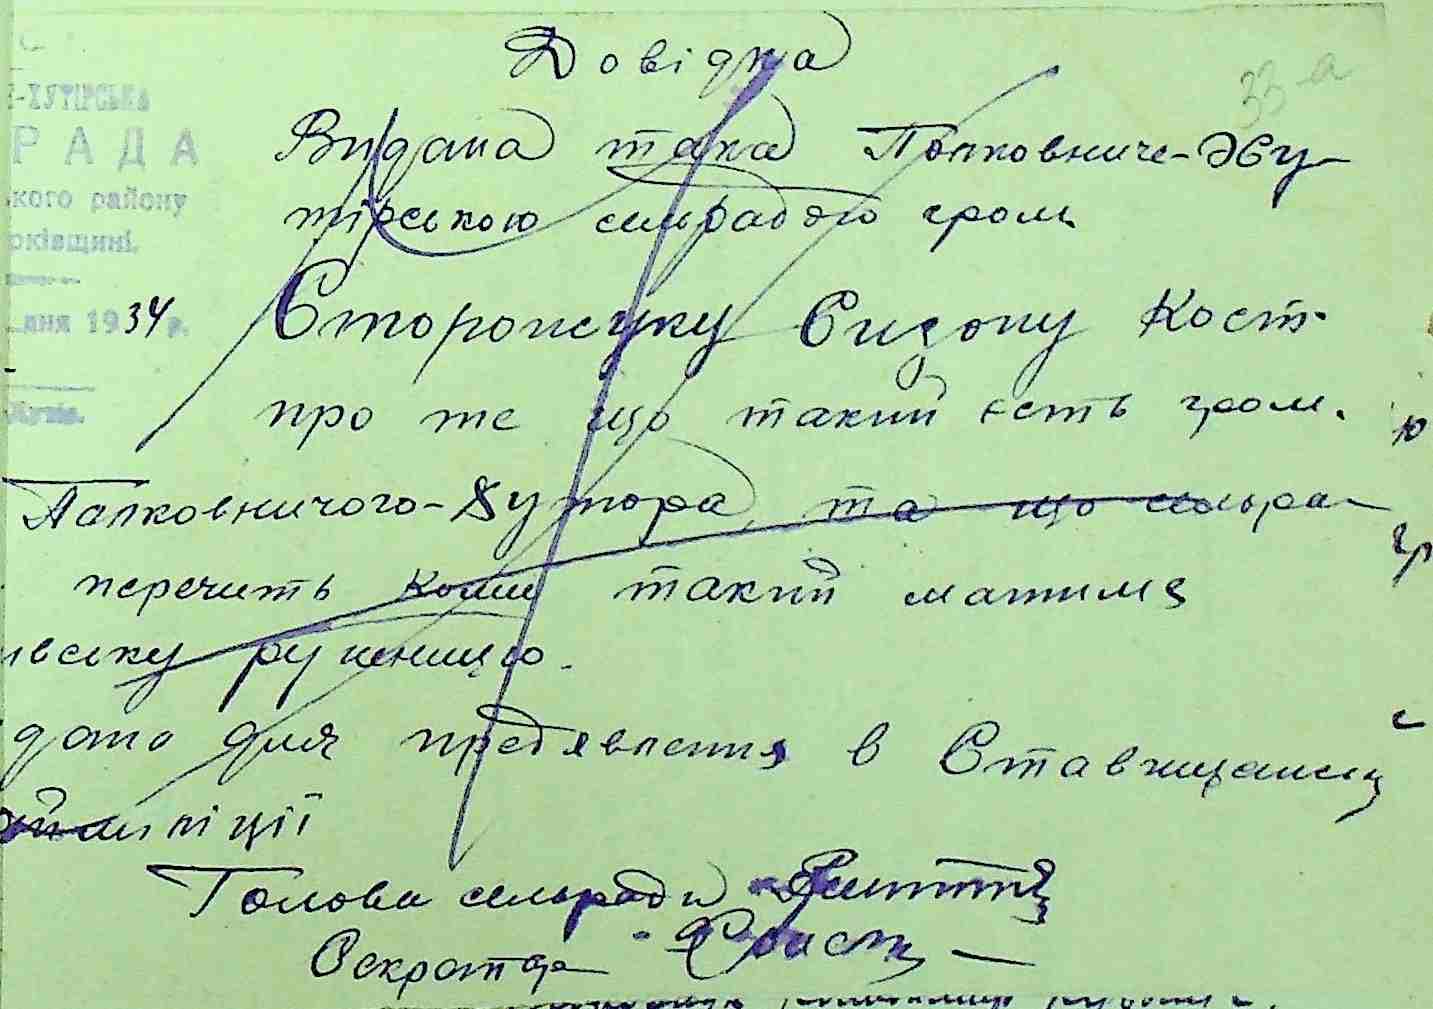 Довідка
33 а
-ХУТІРСЬКА
РАДА
ького району
рківщині.
дня 1934 р.
Хутір.
Видана така Полковниче-Ху-
тірською сельрадою гром.
Сторожуку Сидону Кост.
про те що такий єсть гром.
Полковничого-Хутора, та що сельра-
перечить коли такий матиме
івську рушницю.
дана для предявлення в Ставищанськ
міліції
Голова сельради
Секретар